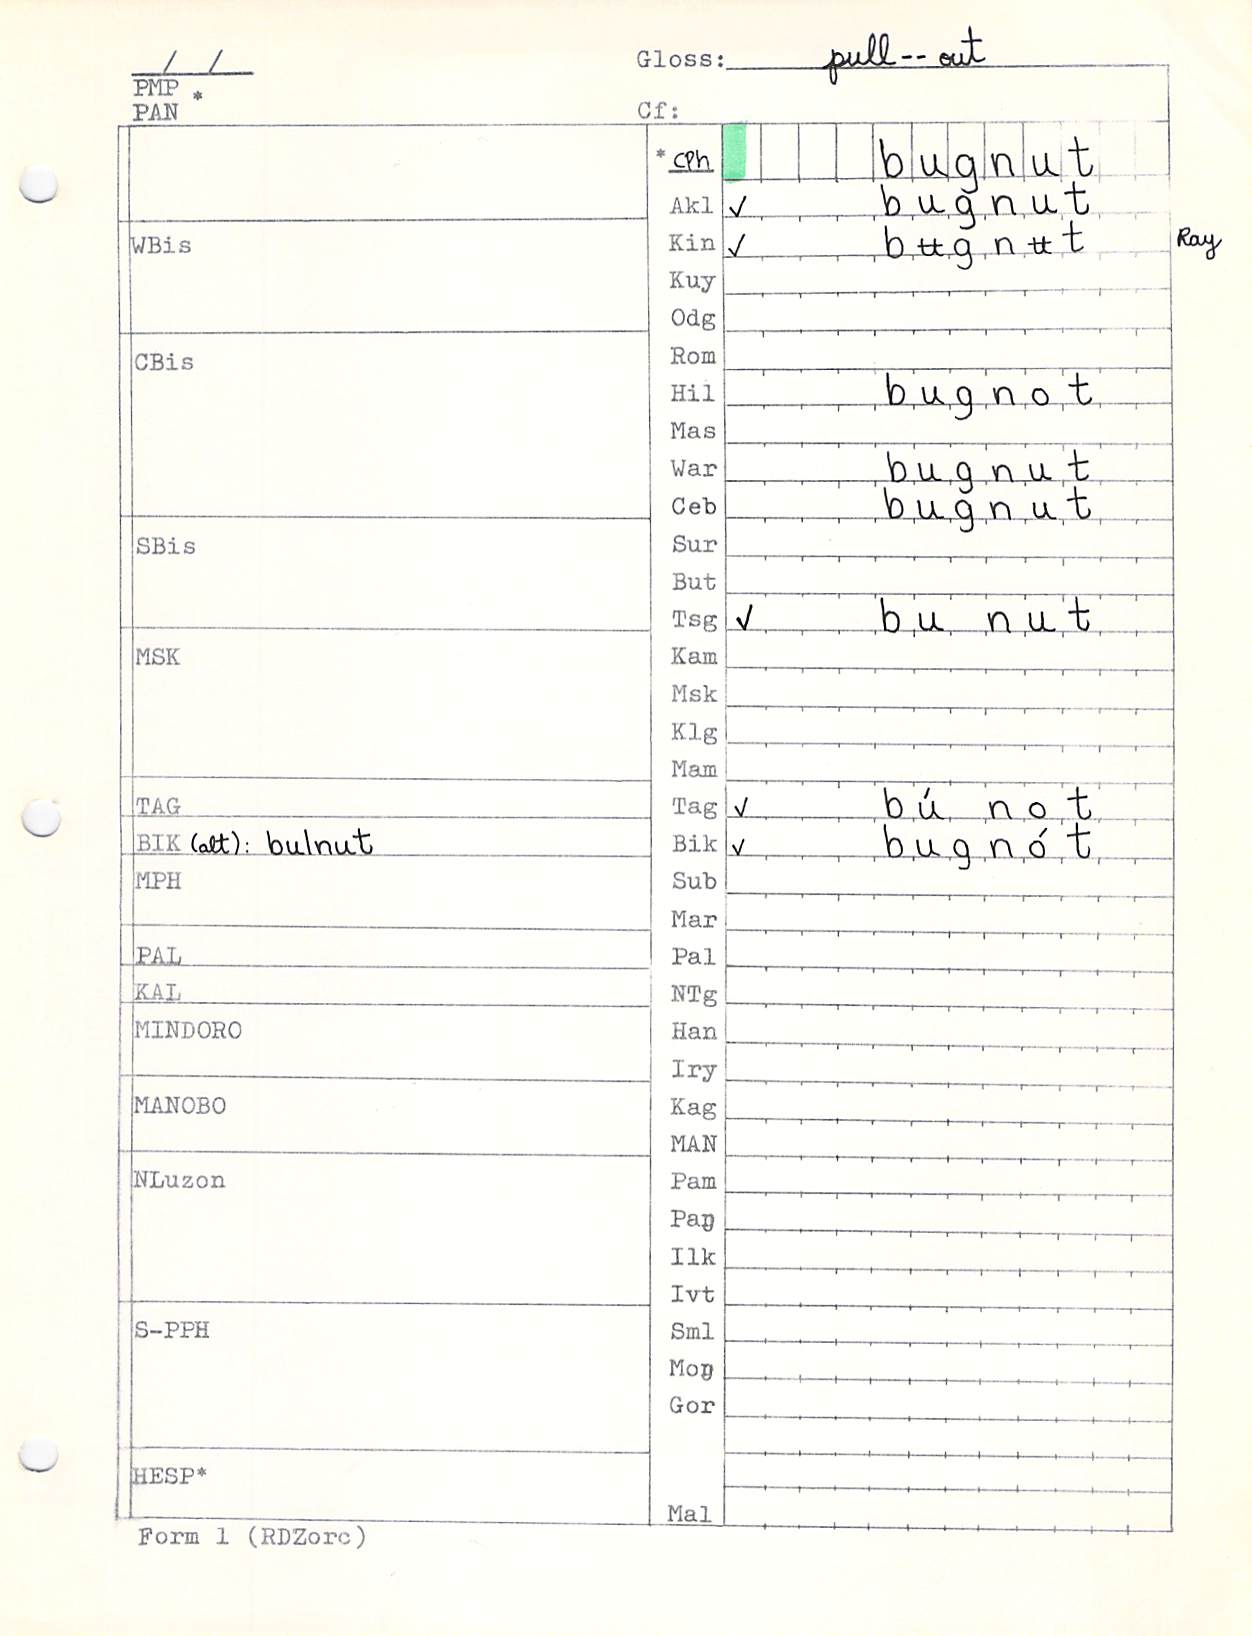 __/__/__ Gloss: pull -- out
PMP *
PAN Cf:
* CPh bugnut
Akl ✓ bugnut
WBis Kin ✓ bʉgnʉt Ray
Kuy
Odg
CBis Rom
Hil bugnot
Mas
War bugnut
Ceb bugnut
SBis Sur
But
Tsg ✓ bu nut
MSK Kam
Msk
Klg
Mam
TAG Tag ✓ bú not
BIK (alt): bulnut Bik ✓ bugnót
MPH Sub
Mar
PAL Pal
KAL NTg
MINDORO Han
Iry
MANOBO Kag
MAN
NLuzon Pam
Paŋ
Ilk
Ivt
S-PPH Sml
Moŋ
Gor
HESP*
Mal
Form 1 (RDZorc)